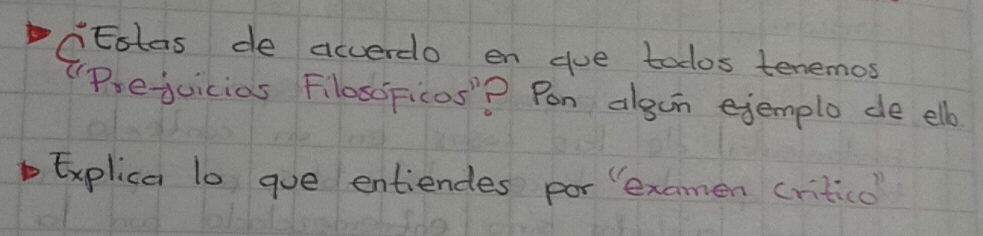 ¿Estas de acuerdo en que todos tenemos
"Pre-juicios Filosóficos"? Pon algún ejemplo de ello
Explica lo que entiendes por "examen critico"